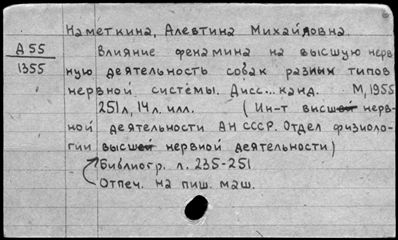 Наметкина, Алевтина Михайловна.
А 55
1355
Влияние фенамина на высшую нерв
ную деятельность собак разных типов
нервной системы. Дисс... канд. М, 1955
251л, 14 л. илл. (Ин-т высшей нерв-
ной деятельности АН СССР. Отдел физиоло-
гии высшей нервной деятельности)
Библиогр. л. 235-251
Отпеч. на пиш. маш.